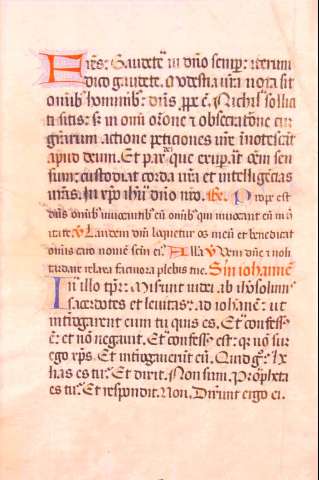 Fr̄es: Gaudete ī dn̄o semp: iterum
dico gaudete. Modestia vr̄a nota sit
omīb hominib: dn̄s ꝓpe ē. Nichil sollici
ti sitis: sꝫ in omī or̄one ⁊ obsecratōne cū
gr̄arum actione peticiones vr̄e īnotescāt
apud deum. Et pax dei que exupat oēm sen
sum: custodiat corda vr̄a et intelligēcias
vr̄as. In xp̄o ihū dn̄o nr̄o. Prope est
dn̄s omīb invocantib eū omīb qui invocant eū ī v̄i
tate. V Laudem dn̄i loquetur os meū et benedicat
omīs caro nomē scm̄ ei. Alla V Veni dn̄e ⁊ noli
tardare relaxa facinora plebis tue. Sm̄ iohannē
In illo tp̄r: Miserunt iudei ab ihrosolimis
sacerdotes et levitas: ad iohanē: ut
introgarent eum tu quis es. Et confess
ē: et nō negavit. Et confess est: q̄ nō sum
ego xp̄s. Et intrrogaverūt eū. Quid g: he
lias es tu. Et dixit. Non sum. Propheta
es tu. Et respondit. Non. Dixerunt ergo ei.